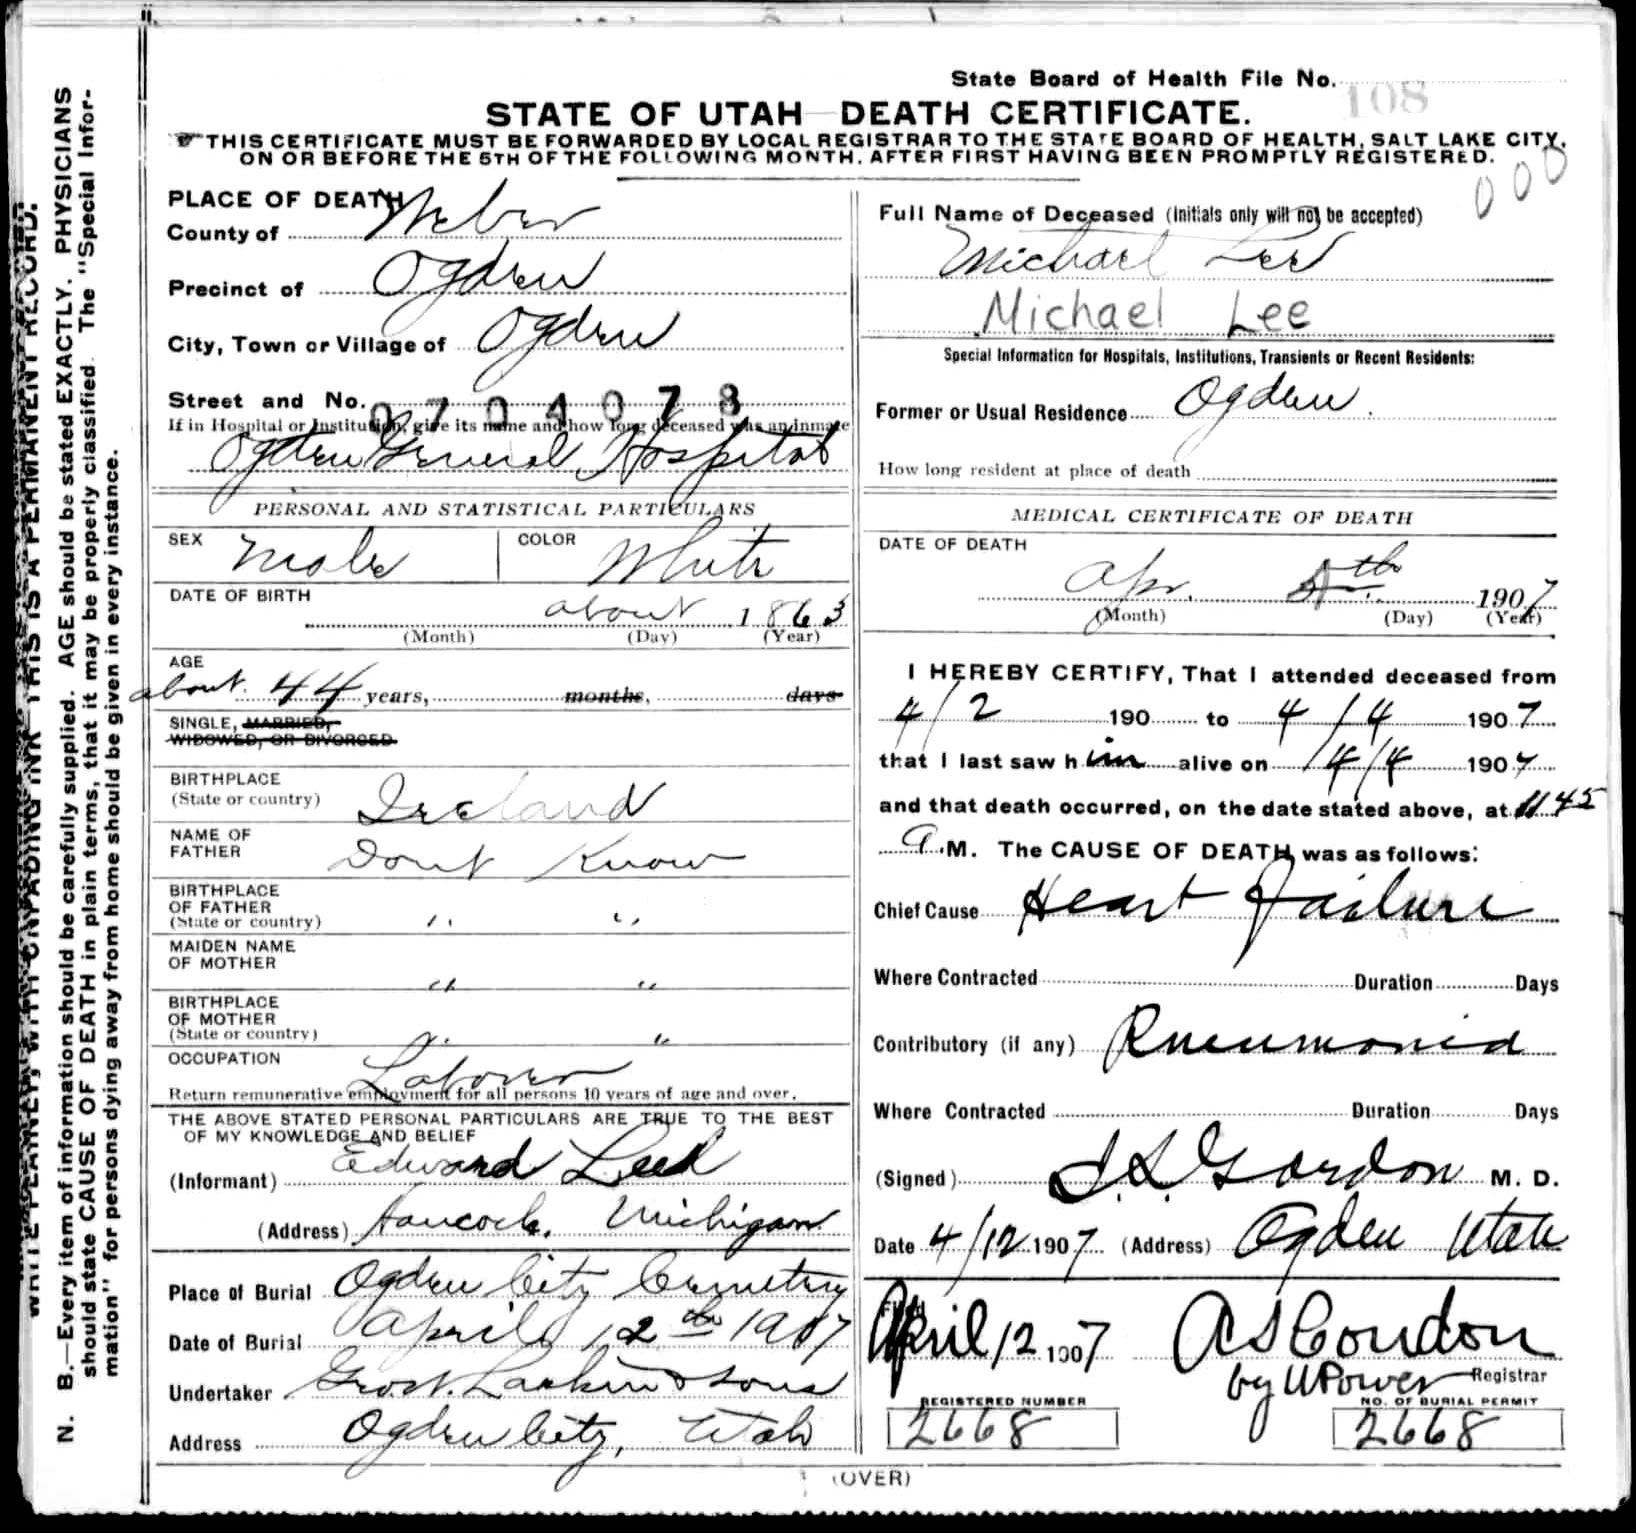 State Board of Health File No. 108
STATE OF UTAH DEATH CERTIFICATE.
THIS CERTIFICATE MUST BE FORWARDED BY LOCAL REGISTRAR TO THE STATE BOARD OF HEALTH, SALT LAKE CITY,
ON OR BEFORE THE 5TH OF THE FOLLOWING MONTH, AFTER FIRST HAVING BEEN PROMPTLY REGISTERED.
000
WRITE PLAINLY, WITH UNFADING INK THIS IS A PERMANENT RECORD.
N. B.—Every item of information should be carefully supplied. AGE should be stated EXACTLY. PHYSICIANS
should state CAUSE OF DEATH in plain terms, that it may be properly classified. The "Special Infor-
mation" for persons dying away from home should be given in every instance.
PLACE OF DEATH
County of Weber
Precinct of Ogden
City, Town or Village of Ogden
Street and No. 0704078
If in Hospital or Institution, give its name and how long deceased was an inmate
Ogden General Hospital
PERSONAL AND STATISTICAL PARTICULARS
SEX Male COLOR White
DATE OF BIRTH about 1863
(Month) (Day) (Year)
AGE
about 44 years, months, days
SINGLE, MARRIED,
WIDOWED, OR DIVORCED
BIRTHPLACE
(State or country) Ireland
NAME OF
FATHER Dont Know
BIRTHPLACE
OF FATHER
(State or country) " "
MAIDEN NAME
OF MOTHER
" "
BIRTHPLACE
OF MOTHER
(State or country) " "
OCCUPATION Laborer
Return remunerative employment for all persons 10 years of age and over.
THE ABOVE STATED PERSONAL PARTICULARS ARE TRUE TO THE BEST
OF MY KNOWLEDGE AND BELIEF
(Informant) Edward Lee
(Address) Hancock, Michigan
Place of Burial Ogden City Cemetery
Date of Burial April 12th 1907
Undertaker Larkin & Sons
Address Ogden City, Utah
Full Name of Deceased (Initials only will not be accepted)
Michael Lee
Michael Lee
Special Information for Hospitals, Institutions, Transients or Recent Residents:
Former or Usual Residence Ogden
How long resident at place of death
MEDICAL CERTIFICATE OF DEATH
DATE OF DEATH
Apr. 4th 1907
(Month) (Day) (Year)
I HEREBY CERTIFY, That I attended deceased from
4/2 190 to 4/4 1907
that I last saw him alive on 4/4 1907
and that death occurred, on the date stated above, at 11 45
A.M. The CAUSE OF DEATH was as follows:
Chief Cause Heart Failure
Where Contracted Duration Days
Contributory (if any) Pneumonia
Where Contracted Duration Days
(Signed) Gordon M. D.
Date 4/12 1907 (Address) Ogden Utah
Filed
April 12 1907 A S Condon
by W Power Registrar
REGISTERED NUMBER NO. OF BURIAL PERMIT
2668 2668
(OVER)